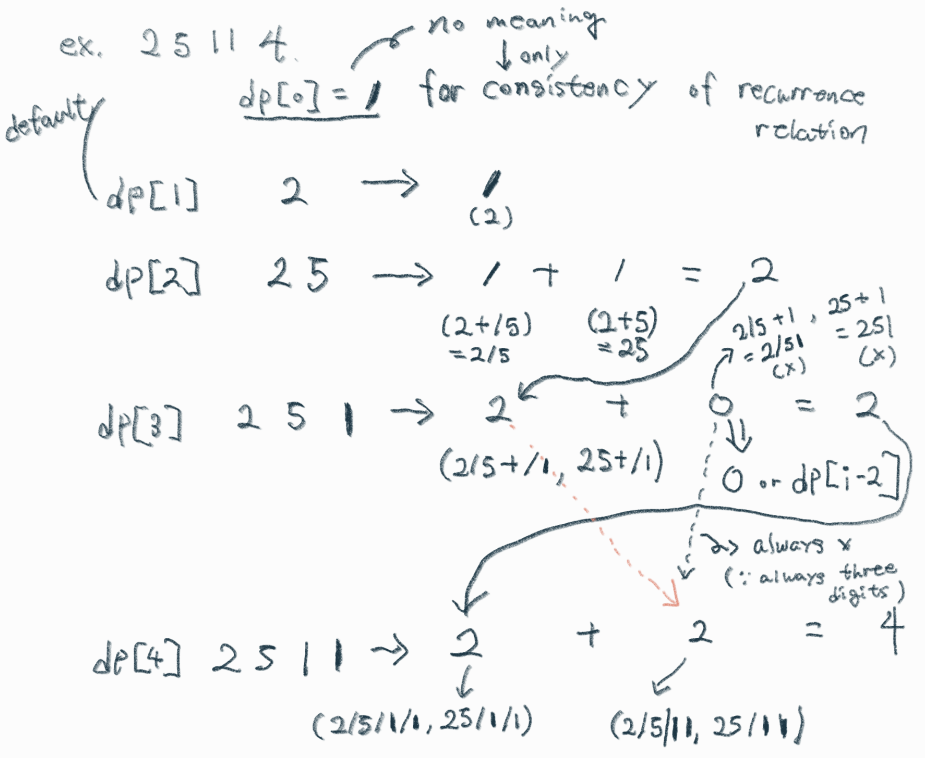 ex. 2 5 1 1 4.
no meaning
↓ only
dp[0] = 1 for consistency of recurrence
relation
default
dp[1] 2 → 1
(2)
dp[2] 2 5 → 1 + 1 = 2
(2+/5) (2+5)
=2/5 =25
2/5+1, 25+1
=2/51 =251
(x) (x)
dp[3] 2 5 1 → 2 + 0 = 2
(2/5+/1, 25+/1)
0 or dp[i-2]
always x
(∵ always three
digits)
dp[4] 2 5 1 1 → 2 + 2 = 4
(2/5/1/1, 25/1/1) (2/5/11, 25/11)